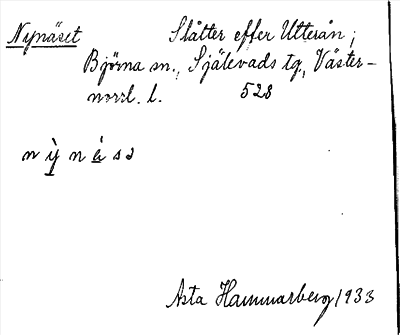 Nynäset Slåtter efter Utterån;
Björna sn., Själevads tg., Väster-
norrl. l. 528
n ỳ n ȧ s ə
Asta Hammarberg 1933